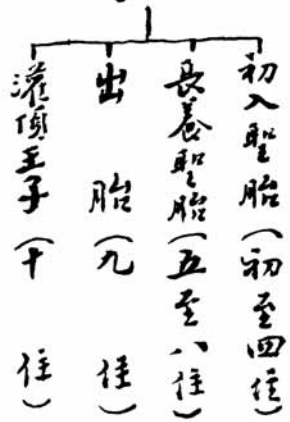 初入聖胎(初至四住)
長養聖胎(五至八住)
出胎(九住)
灌頂王子(十住)